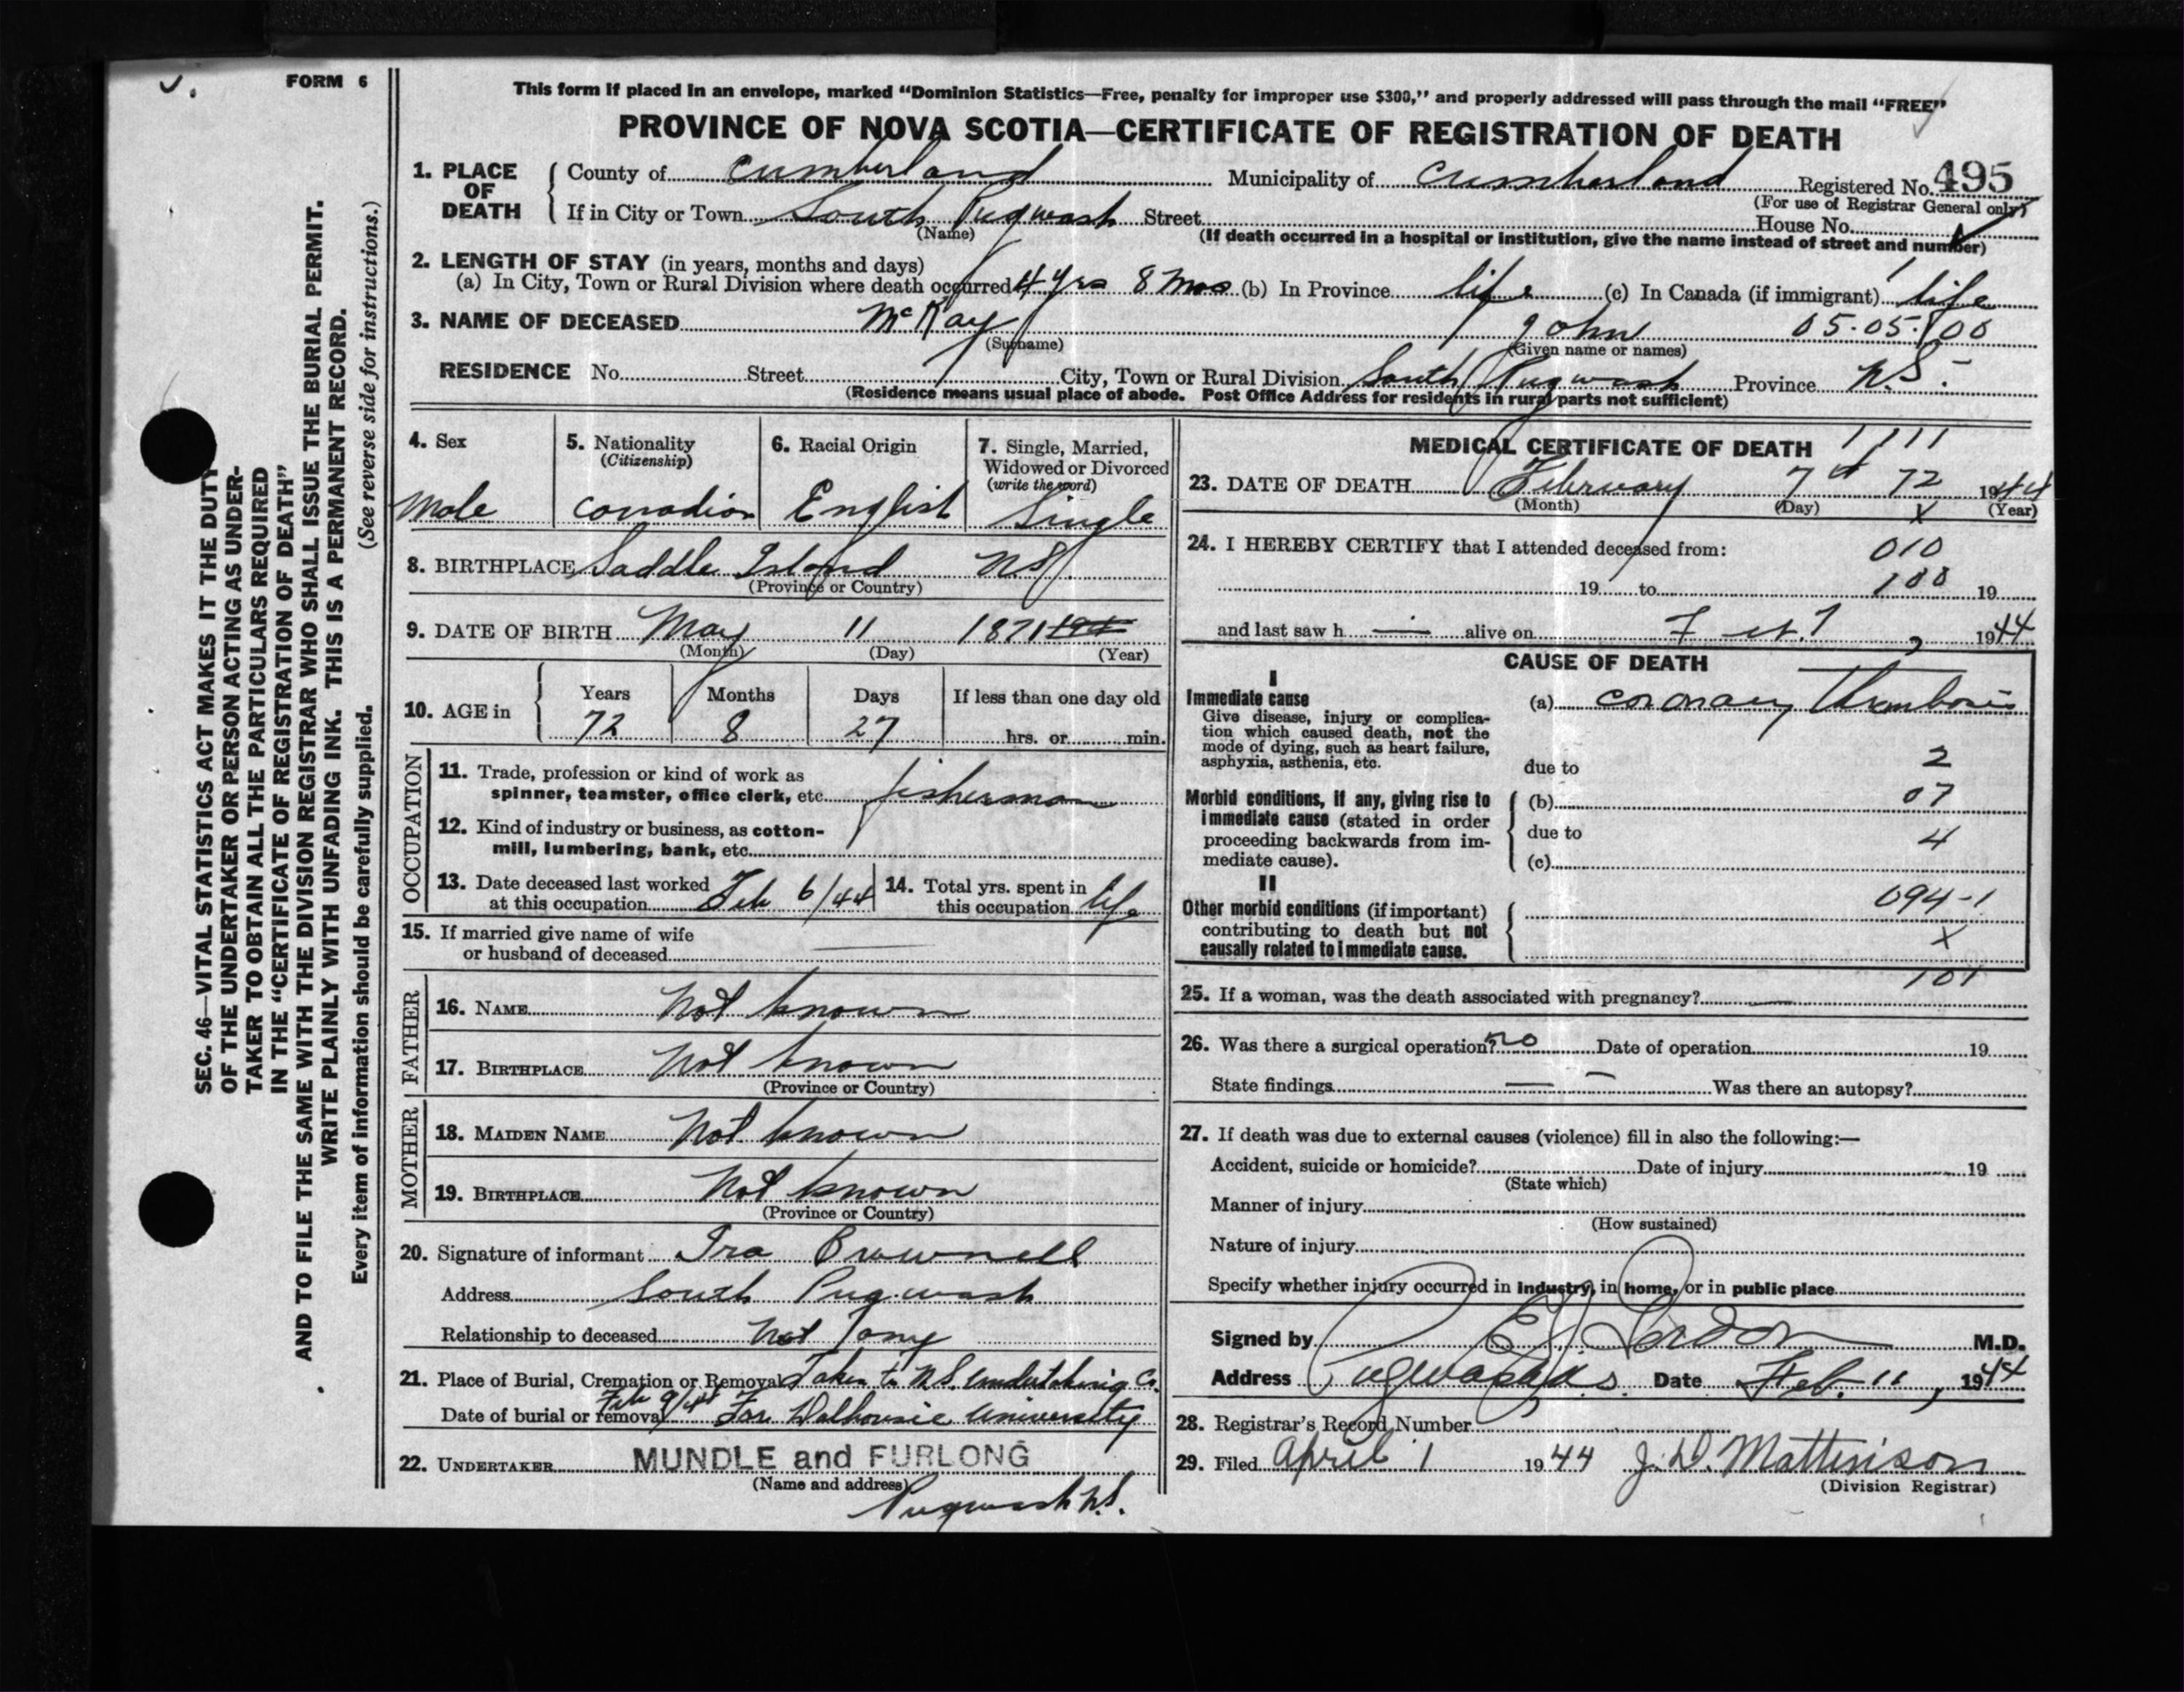 FORM 6
This form if placed in an envelope, marked “Dominion Statistics—Free, penalty for improper use $300,” and properly addressed will pass through the mail “FREE”
PROVINCE OF NOVA SCOTIA—CERTIFICATE OF REGISTRATION OF DEATH
1. PLACE OF DEATH County of Cumberland Municipality of Cumberland Registered No. 495
(For use of Registrar General only)
If in City or Town South Pugwash Street House No.
(Name) (If death occurred in a hospital or institution, give the name instead of street and number)
2. LENGTH OF STAY (in years, months and days)
(a) In City, Town or Rural Division where death occurred 4 yrs 8 mos (b) In Province life (c) In Canada (if immigrant) life
3. NAME OF DECEASED McKay John 05.05.100
(Surname) (Given name or names)
RESIDENCE No. Street City, Town or Rural Division South Pugwash Province N.S.
(Residence means usual place of abode. Post Office Address for residents in rural parts not sufficient)
4. Sex 5. Nationality (Citizenship) 6. Racial Origin 7. Single, Married, Widowed or Divorced (write the word)
Male Canadian English Single
8. BIRTHPLACE Saddle Island N.S.
(Province or Country)
9. DATE OF BIRTH May 11 1871
(Month) (Day) (Year)
10. AGE in Years Months Days If less than one day old
72 8 27 hrs. or min.
OCCUPATION
11. Trade, profession or kind of work as
spinner, teamster, office clerk, etc. fisherman
12. Kind of industry or business, as cotton-
mill, lumbering, bank, etc.
13. Date deceased last worked at this occupation Feb 6/44 14. Total yrs. spent in this occupation life
15. If married give name of wife
or husband of deceased
FATHER
16. NAME Not known
17. BIRTHPLACE Not known
(Province or Country)
MOTHER
18. MAIDEN NAME Not known
19. BIRTHPLACE Not known
(Province or Country)
20. Signature of informant Ira Brownell
Address South Pugwash
Relationship to deceased Not any
21. Place of Burial, Cremation or Removal Taken to N.S. Undertaking Co.
Date of burial or removal Feb 9/44 For Dalhousie University
22. UNDERTAKER MUNDLE and FURLONG
(Name and address)
Pugwash N.S.
MEDICAL CERTIFICATE OF DEATH 1 1 1 1
23. DATE OF DEATH February 7th 72 1944
(Month) (Day) X (Year)
24. I HEREBY CERTIFY that I attended deceased from: 010
19 to 100 19
and last saw h — alive on 1944
CAUSE OF DEATH
I
Immediate cause
Give disease, injury or complica-
tion which caused death, not the
mode of dying, such as heart failure,
asphyxia, asthenia, etc.
(a) coronary Thrombosis
due to 2
Morbid conditions, if any, giving rise to
immediate cause (stated in order
proceeding backwards from im-
mediate cause).
(b) 07
due to 4
(c)
II
Other morbid conditions (if important)
contributing to death but not
causally related to immediate cause.
094-1
X
101
25. If a woman, was the death associated with pregnancy? —
26. Was there a surgical operation? no Date of operation 19
State findings — — Was there an autopsy?
27. If death was due to external causes (violence) fill in also the following:—
Accident, suicide or homicide? Date of injury 19
(State which)
Manner of injury
(How sustained)
Nature of injury
Specify whether injury occurred in industry, in home, or in public place
Signed by M.D.
Address Date Feb. 11, 1944
28. Registrar’s Record Number
29. Filed April 1 1944 J. D. Mattinson
(Division Registrar)
SEC. 46—VITAL STATISTICS ACT MAKES IT THE DUTY
OF THE UNDERTAKER OR PERSON ACTING AS UNDER-
TAKER TO OBTAIN ALL THE PARTICULARS REQUIRED
IN THE “CERTIFICATE OF REGISTRATION OF DEATH”
AND TO FILE THE SAME WITH THE DIVISION REGISTRAR WHO SHALL ISSUE THE BURIAL PERMIT.
WRITE PLAINLY WITH UNFADING INK. THIS IS A PERMANENT RECORD.
Every item of information should be carefully supplied. (See reverse side for instructions.)